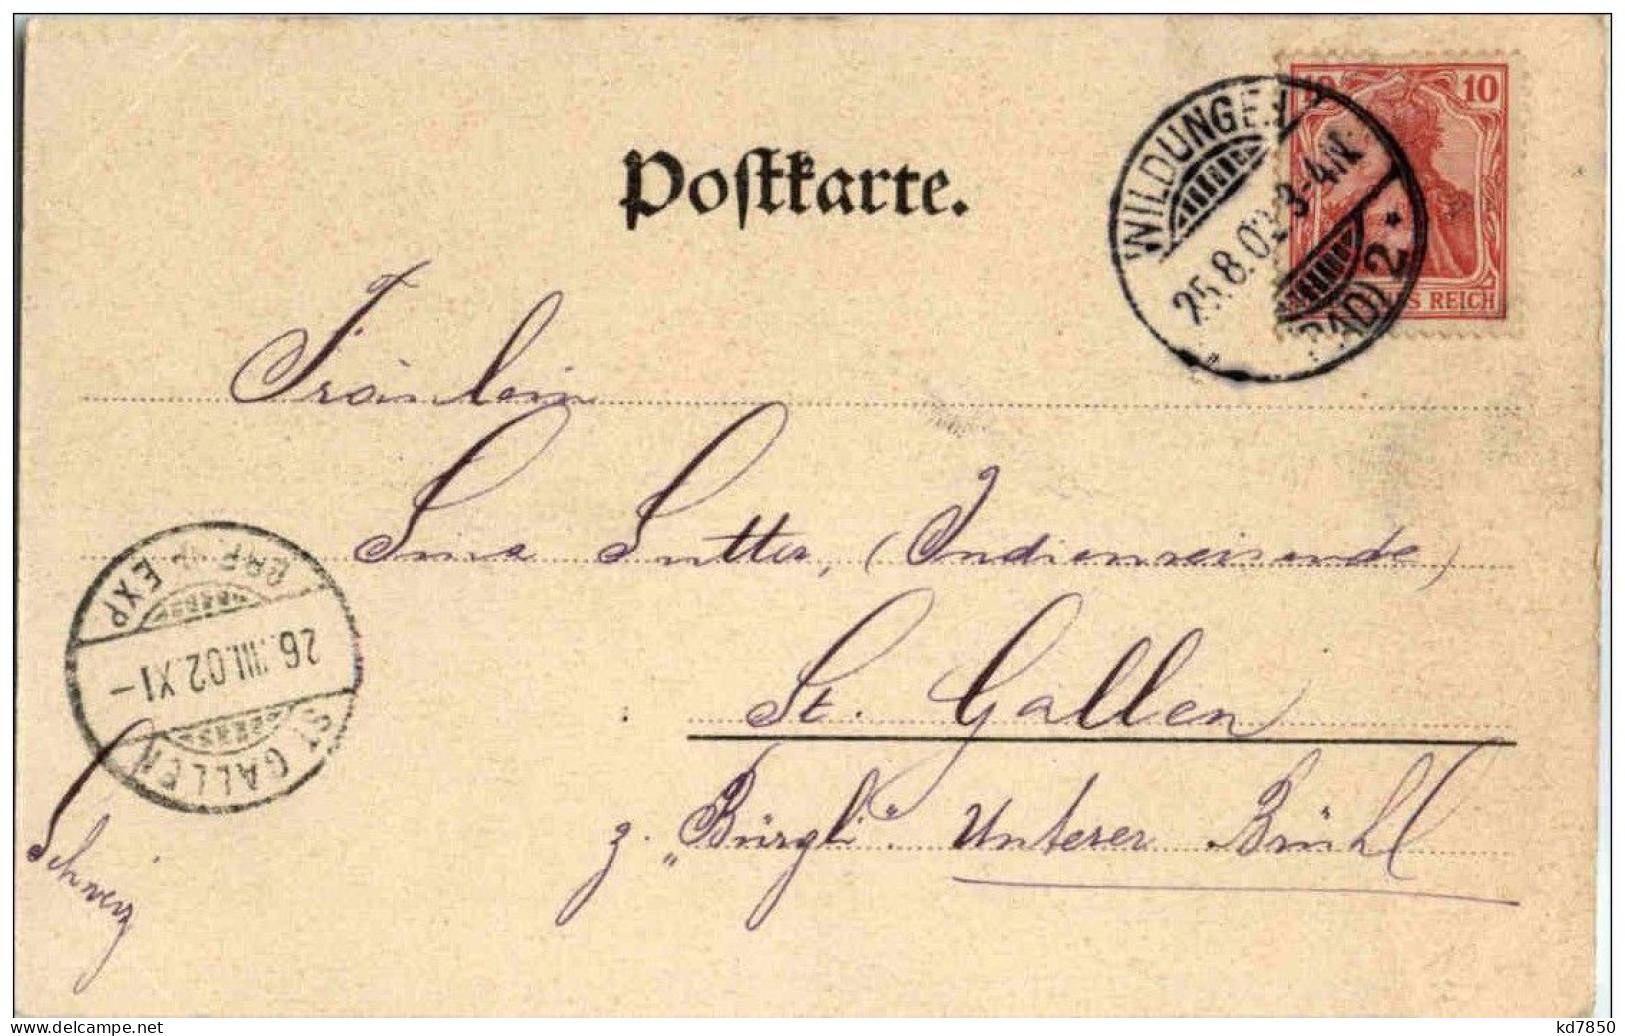 Postkarte.
10 10
WILDUNGEN
25.8.02 3-4N.
(BAD) 2 *
REICH
Fräulein
Lina Sutter, (Indienreisende)
St. Gallen
z. „Bürgli" Unterer Brühl
Schweiz
BRF. EXP.
26.VIII.02.XI-
ST. GALLEN
kd7850